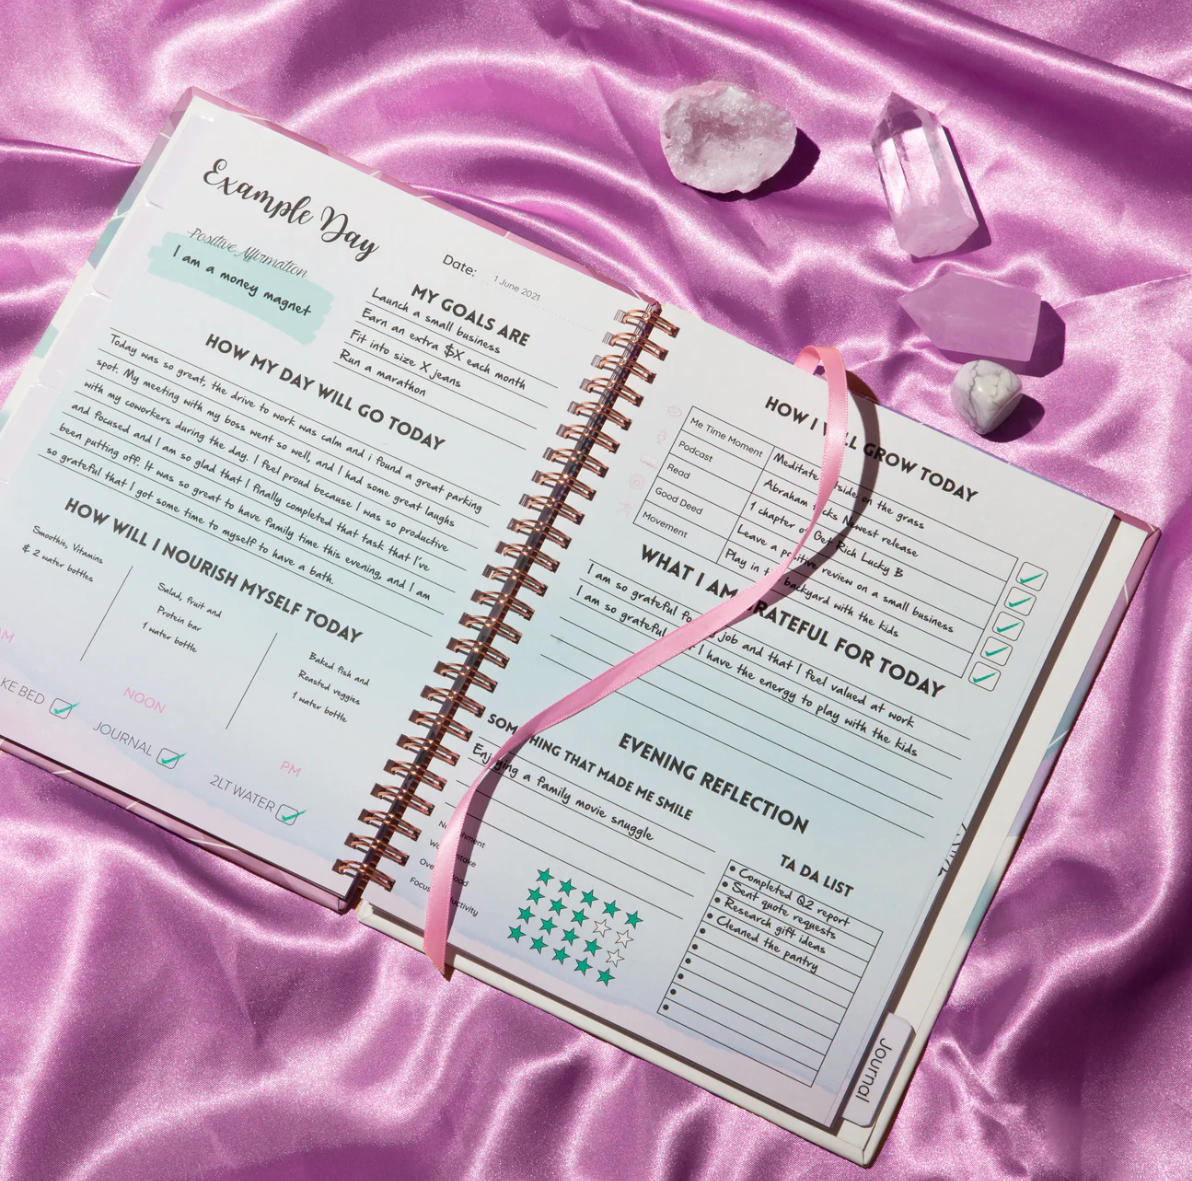 Example Day
Positive Affirmation
I am a money magnet
Date: 1 June 2021
MY GOALS ARE
Launch a small business
Earn an extra $X each month
Fit into size X jeans
Run a marathon
HOW MY DAY WILL GO TODAY
Today was so great, the drive to work was calm and i found a great parking
spot. My meeting with my boss went so well, and I had some great laughs
with my coworkers during the day. I feel proud because I was so productive
and focused and I am so glad that I finally completed that task that I've
been putting off. It was so great to have family time this evening, and I am
so grateful that I got some time to myself to have a bath.
HOW WILL I NOURISH MYSELF TODAY
Smoothie, Vitamins
& 2 water bottles
Salad, fruit and
Protein bar
1 water bottle
Baked fish and
Roasted veggies
1 water bottle
AM
NOON
PM
KE BED
JOURNAL
2LT WATER
HOW I WILL GROW TODAY
Me Time Moment Meditate side on the grass
Podcast Abraham cks Newest release
Read 1 chapter of Get Rich Lucky B
Good Deed Leave a positive review on a small business
Movement Play in backyard with the kids
WHAT I AM GRATEFUL FOR TODAY
I am so grateful job and that I feel valued at work
I am so grateful I have the energy to play with the kids
EVENING REFLECTION
SOMETHING THAT MADE ME SMILE
Enjoying a family movie snuggle
TA DA LIST
Completed Q2 report
Sent quote requests
Research gift ideas
Cleaned the pantry
Journal